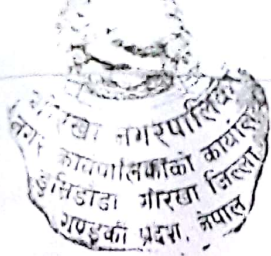 गोरखा नगरपालिका
नगर कार्यपालिकाको कार्यालय
गोरखा जिल्ला
गण्डकी प्रदेश, नेपाल